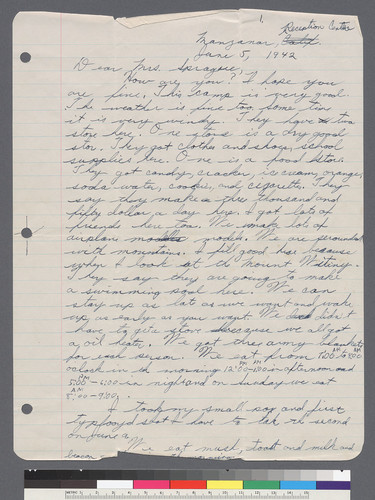 1.
Reception Center
Manzanar, Calif
June 5, 1942
Dear Mrs. Sprague,
How are you? I hope you
are fine. This camp is very good.
The weather is fine too some time
it is very windy. They have two
store here. One store is a dry good
stor. They got clothes and shoes, school
supplies here. One is a food stor.
They got candy, cracker, icream, oranges,
soda water, cookie, and cigarette. They
say they make a three thousand and
fifty dollar a day here. I got lots of
friends here too. We make lots of
airplan models. We are surrounded
with mountains. I feel good because
when I look at the mount Witney.
They say they are going to make
a swimming pool here. We can
stay up as lat as we want and wake
up as early as you want. We didn't
have to get a stove because we all got
a oil heater. We got three army blankets
for each person. We eat from 7:00 AM to 8:00 AM
oclock in the morning 12:00-13:00 in afternoon and
5:00 PM-6:00 in night and on sunday we eat
8:00 AM-9:00.
I took my small pox and first
typhoyd shot I have to tak th second
on June
We eat mush, toast and milk and